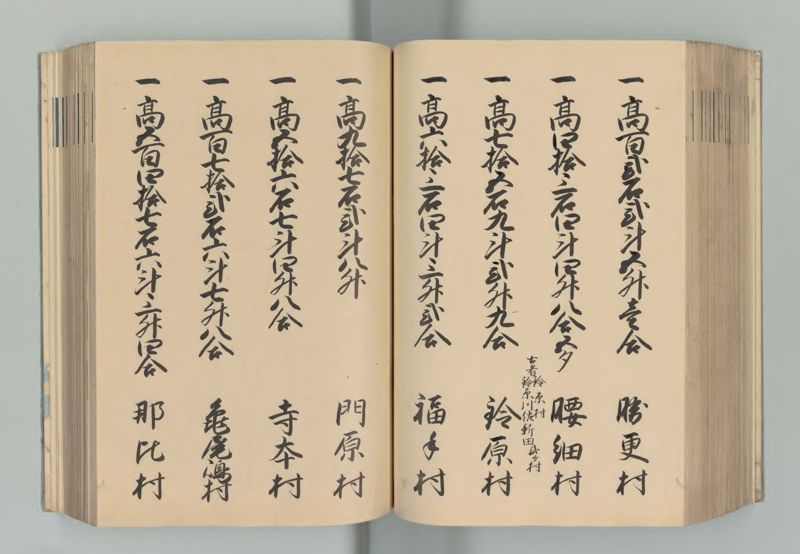 一高百弐石弐斗五升壱合 勝更村
一高四拾三石四斗四升八合五夕 腰細村
古者鈴原村
鈴原川佐新田弐ケ村
一高七拾五石九斗弐升九合 鈴原村
一高六拾三石四斗三升弐合 福手村
一高九拾七石弐斗八升 門原村
一高五拾六石七斗四升八合 寺本村
一高百七拾弐石六斗七升八合 亀尾嶋村
一高五百四拾七石六斗三升四合 那比村